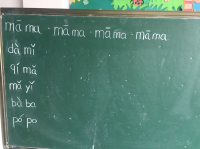 mā ma · mā ma · mā ma · mā ma
dà mǐ
qí mǎ
mǎ yǐ
bà ba
pó po